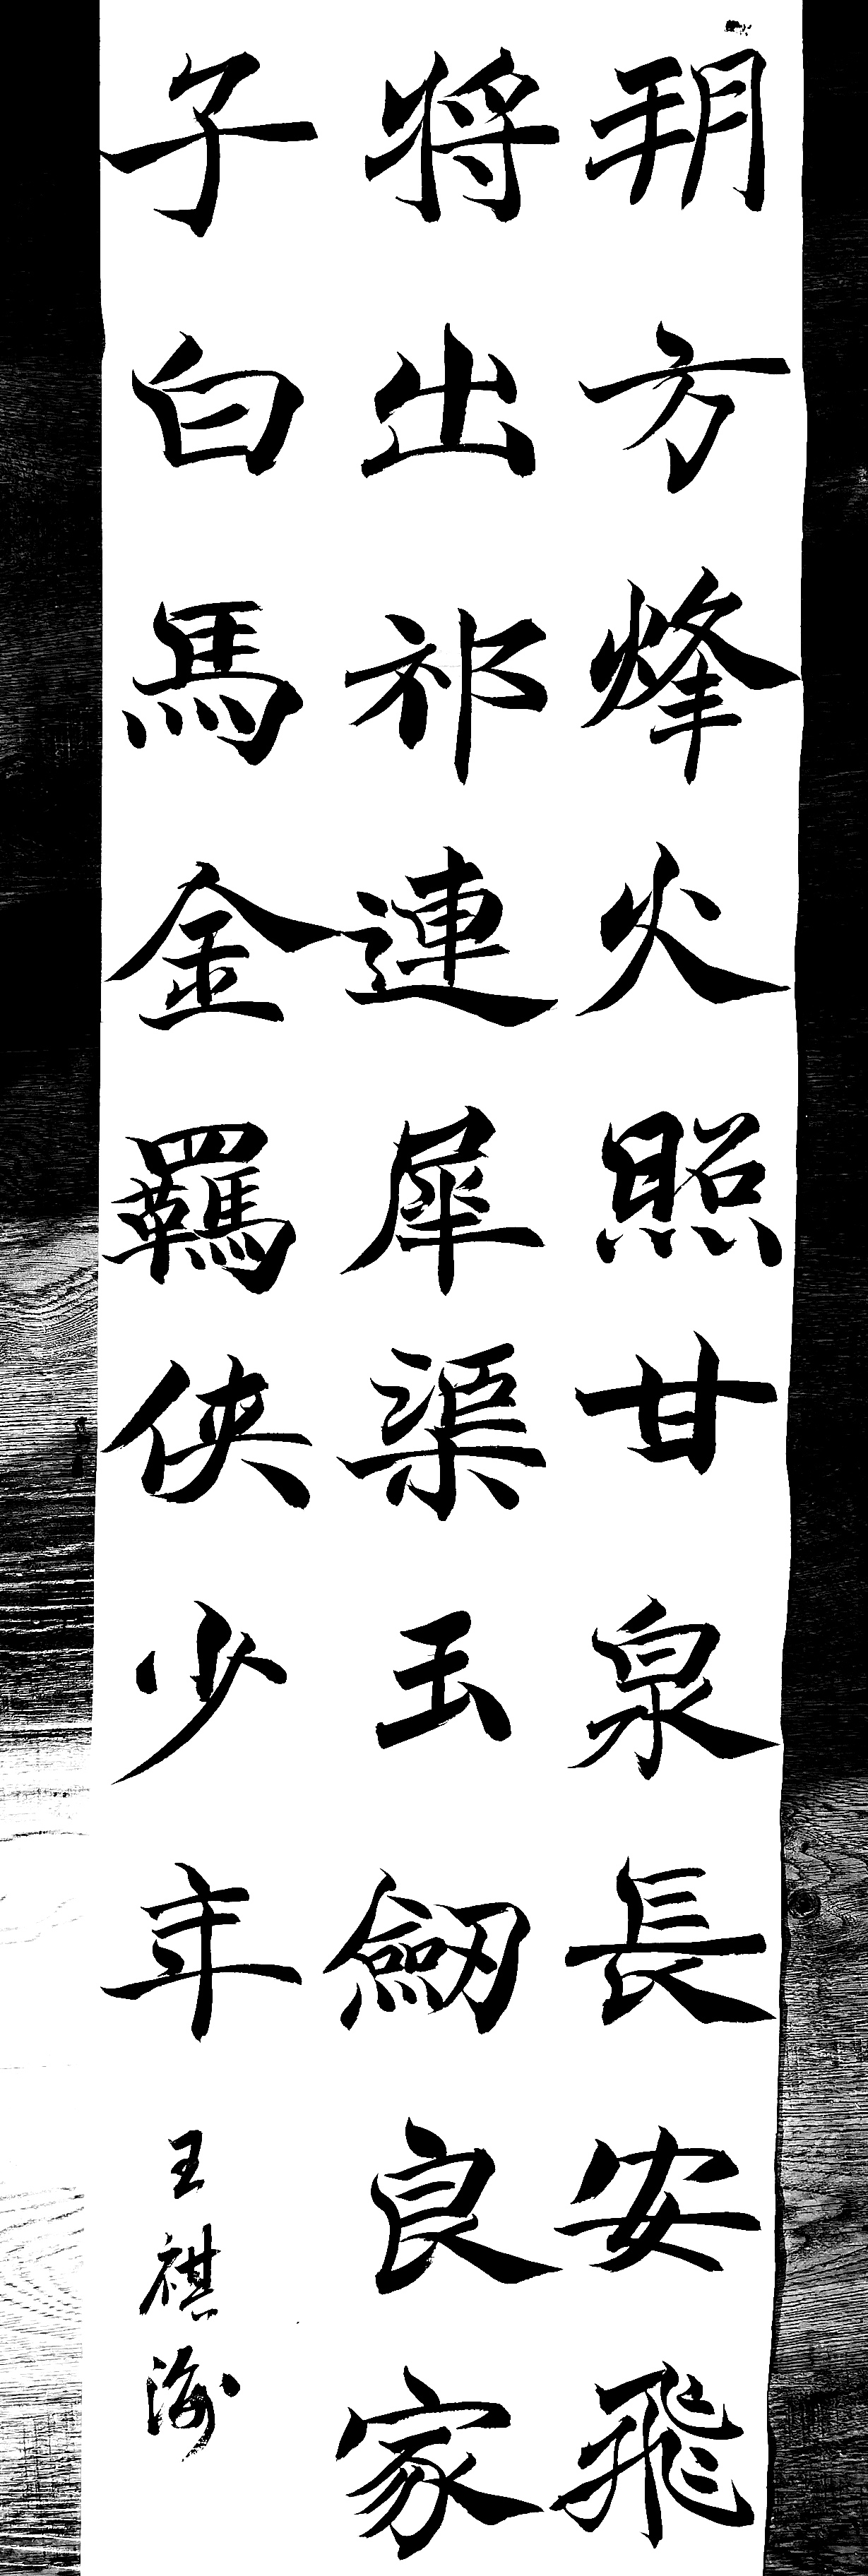 朔方烽火照甘泉長安飛
將出祁連犀渠玉劒良家
子白馬金羈俠少年
王祺海